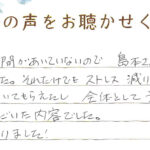 の声をお聴かせく
問があいていないので 島本さ
た。それだけでも ストレス 減り
いてもらえたし 全体として
だいた内容でした。
りました!